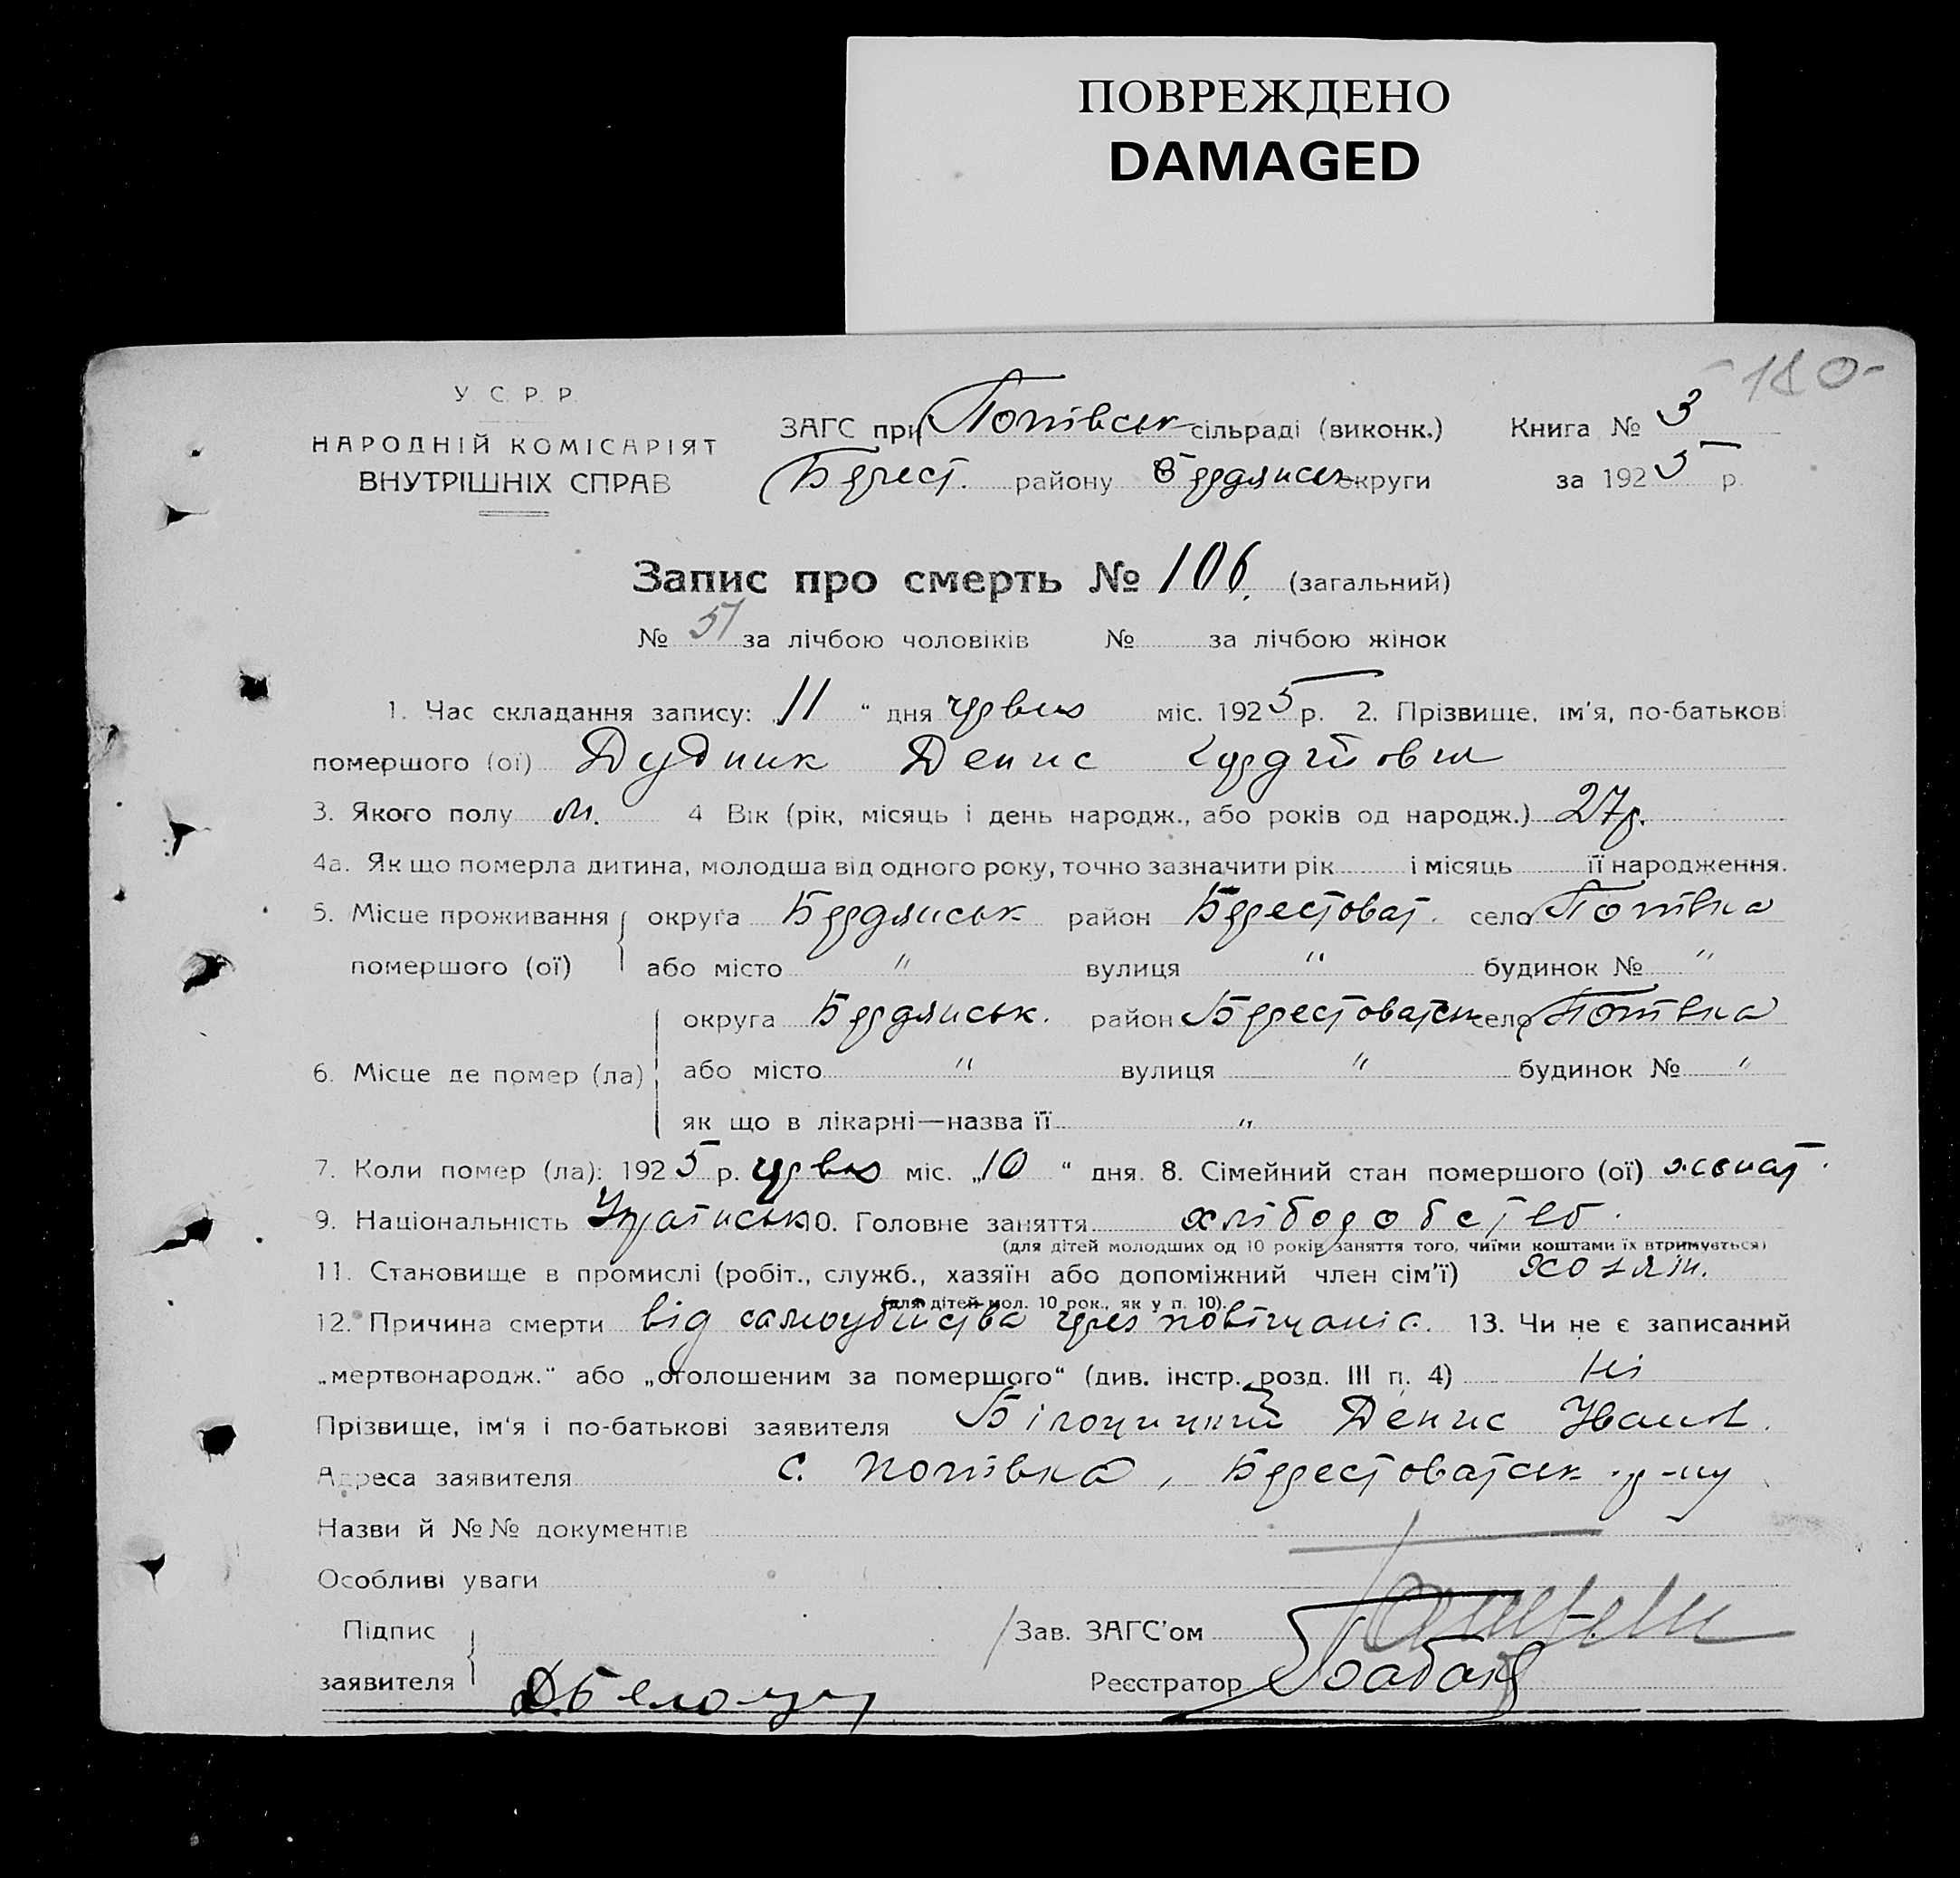 ПОВРЕЖДЕНО
DAMAGED
-180-
У. С. Р. Р.
НАРОДНІЙ КОМІСАРІЯТ
ВНУТРІШНІХ СПРАВ
ЗАГС при Попівськ сільраді (виконк.) Книга № 3
Берест. району Бердянськ округи за 1925 р.
Запис про смерть № 106. (загальний)
№ 51 за лічбою чоловіків № за лічбою жінок
1. Час складання запису: „11“ дня червня міс. 1925 р. 2. Прізвище, ім'я, по-батькові
помершого (ої) Дудник Денис
3. Якого полу м. 4 Вік (рік, місяць і день народж., або років од народж.) 27 р.
4а. Як що померла дитина, молодша від одного року, точно зазначити рік і місяць її народження.
5. Місце проживання округа Бердянськ район Берестоват. село Попівка
помершого (ої) або місто " вулиця " будинок № "
округа Бердянськ. район Берестоватськ село Попівка
6. Місце де помер (ла) або місто " вулиця " будинок № "
як що в лікарні—назва її "
7. Коли помер (ла): 1925 р. червня міс. „10“ дня. 8. Сімейний стан помершого (ої) жонат.
9. Національність 10. Головне заняття хліборобство.
(для дітей молодших од 10 років, заняття того, чиїми коштами їх втримується)
11. Становище в промислі (робіт., служб., хазяїн або допоміжний член сім'ї) хозяїн.
(для дітей мол. 10 рок., як у п. 10).
12. Причина смерти від самоубийства через повішаніє. 13. Чи не є записаний
„мертвонародж.“ або „оголошеним за помершого“ (див. інстр. розд. III п. 4) Ні
Прізвище, ім'я і по-батькові заявителя Білоцицкий Денис Иван.
Адреса заявителя с. Попівка, Берестоватськ. р-ну
Назви й №№ документів
Особливі уваги
Підпис Зав. ЗАГС'ом
заявителя Реєстратор